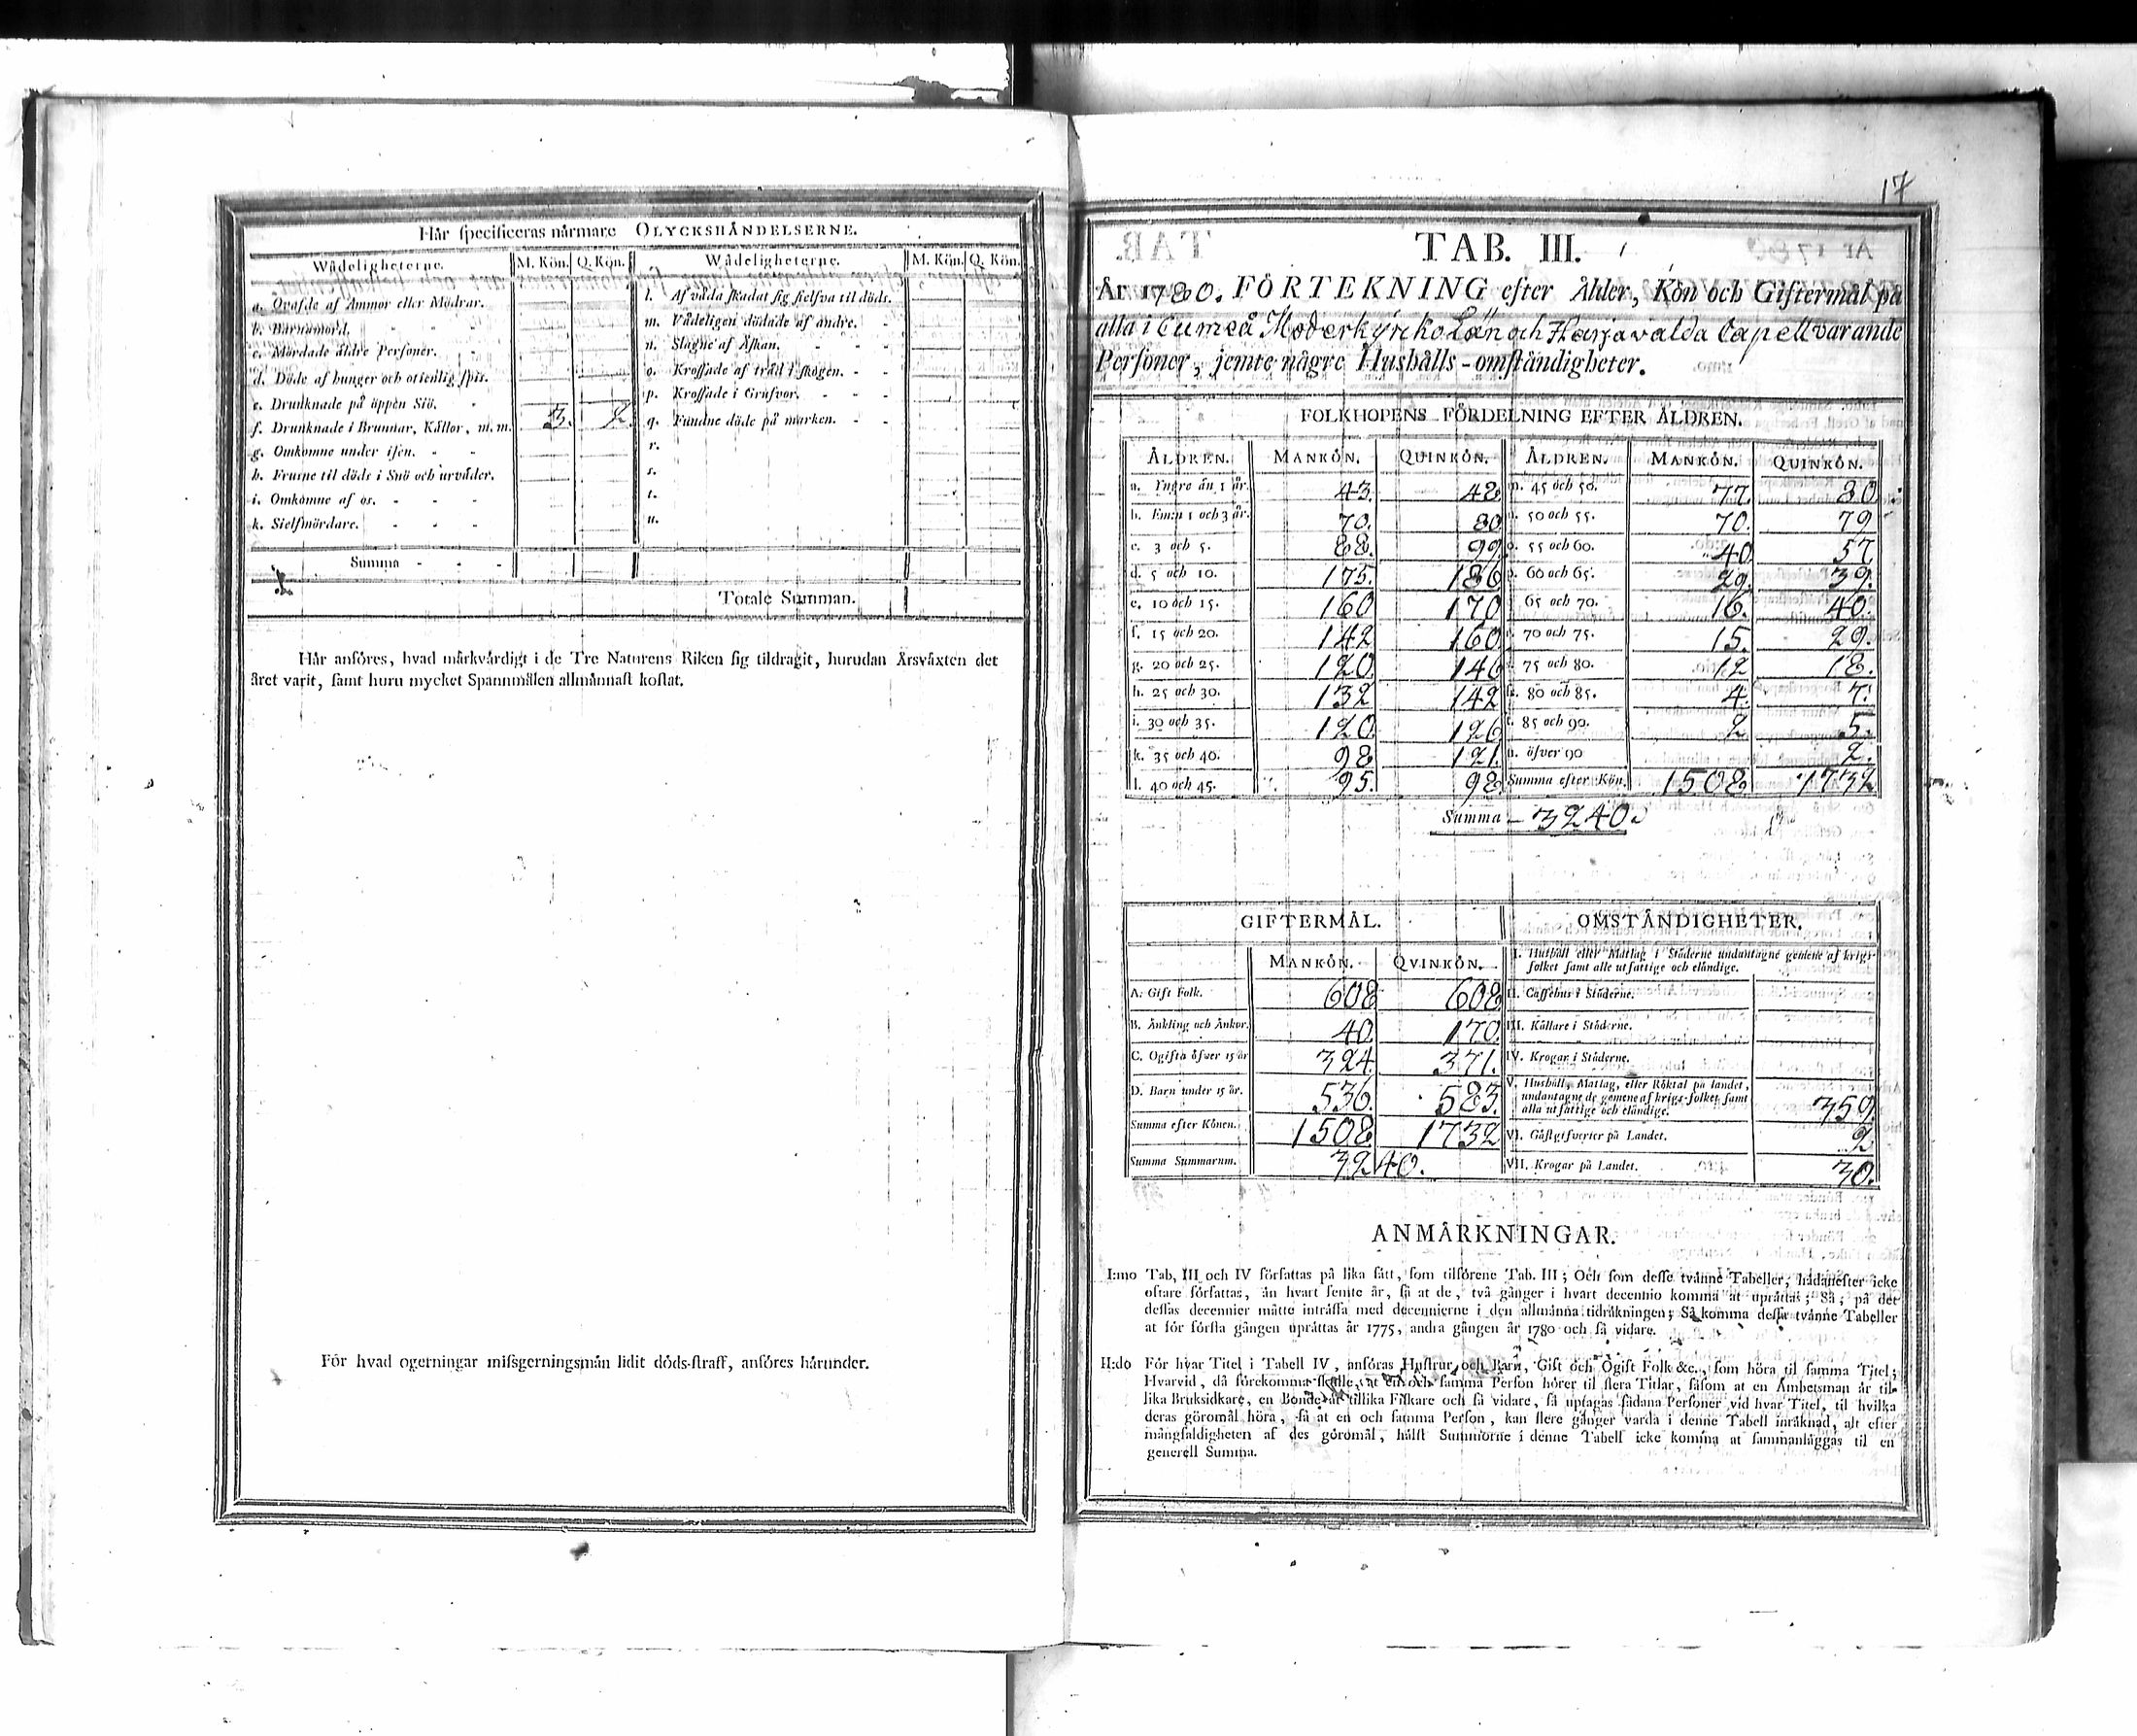 Hår specificeras nårmare OLYCKSHÅNDELSERNE.
Wådeligheterne. M. Kön. Q. Kön. Wådeligheterne. M. Kön. Q. Kön.
a. Qvafde af Ammor eller Mödrar.
b. Barnamord.
c. Mördade åldre Personer.
d. Döde af hunger och otienlig spis.
e. Drunknade på öppen Siö.
f. Drunknade i Brunnar, Kållor, m. m. 3. 2.
g. Omkomne under isen.
h. Frusne til döds i Snö och urvåder.
i. Omkomne af os.
k. Sielfmördare.
l. Af våda skadat sig sielfva til döds.
m. Vådeligen dödade af andre.
n. Slagne af Åskan.
o. Krossade af tråd i skogen.
p. Krossade i Grufvor.
q. Fundne döde på marken.
r.
s.
t.
u.
Summa
Totale Summan.
Hår anföres, hvad mårkvårdigt i de Tre Naturens Riken sig tildragit, hurudan Årsvåxten det
året varit, samt huru mycket Spannmålen allmånnast kostat.
För hvad ogerningar missgerningsmån lidit döds-straff, anföres hårunder.
17
TAB. III.
År 1780. FÖRTEKNING efter Ålder, Kön och Giftermål på
alla i Eumeå Moderkyrko Län och Harjavalda Capell varande
Personer, jemte någre Hushålls-omståndigheter.
FOLKHOPENS FÖRDELNING EFTER ÅLDREN.
ÅLDREN. MANKÖN. QUINKÖN. ÅLDREN. MANKÖN. QUINKÖN.
a. Yngre ån 1 år. 43. 48. m. 45 och 50. 77. 80
b. Emn 1 och 3 år. 70. 80 n. 50 och 55. 70. 79
c. 3 och 5. 88. 99. o. 55 och 60. 40 57
d. 5 och 10. 175. 186 p. 60 och 65. 29. 39.
e. 10 och 15. 160 170 65 och 70. 16. 40.
f. 15 och 20. 142 160. 70 och 75. 15. 29.
g. 20 och 25. 120. 146 75 och 80. 12 18.
h. 25 och 30. 132 142 s. 80 och 85. 4. 7.
i. 30 och 35. 120. 126 t. 85 och 90. 2 5.
k. 35 och 40. 98 121. u. öfver 90 2.
l. 40 och 45. 95. 98. Summa efter Kön. 1508. 1732
Summa 3240.
GIFTERMÅL. OMSTÅNDIGHETER.
MANKÖN. QVINKÖN.
A. Gift Folk. 608 608
B. Änkling och Änkor. 40. 170.
C. Ogifta öfver 15 år 324. 371.
D. Barn under 15 år. 536. 583.
Summa efter Könen. 1508. 1732
Summa Summarum. 3240.
I. Hushåll eller Matlag i Ståderne undantagne gemene af krigs-
folket samt alle utfattige och elåndige.
II. Caffehus i Ståderne.
III. Kållare i Ståderne.
IV. Krogar i Ståderne.
V. Hushåll, Matlag, eller Röktal på landet,
undantagne de gemene af krigs-folket samt
alla utfattige och elåndige. 359.
VI. Gåstgifverier på Landet. 2
VII. Krogar på Landet. 30.
ANMÅRKNINGAR.
I:mo Tab. III och IV författas på lika sått, som tilförene Tab. III; Och som desse tvånne Tabeller, hådanefter icke
oftare författas, ån hvart femte år, så at de, två gånger i hvart decennio komma at uprättas; Så, på det
dessas decennier måtte intråffa med decennierne i den allmånna tidråkningen; Så komma desse tvånne Tabeller
at för första gången upråttas år 1775, andra gången år 1780 och så vidare.
II:do För hvar Titel i Tabell IV, anföras Hustrur och Barn, Gift och Ogift Folk &c., som höra til samma Titel;
Hvarvid, då förekomma skulle, at en och samma Person hörer til flera Titlar, såsom at en Åmbetsman år til-
lika Bruksidkare, en Bonde år tillika Fiskare och så vidare, så uptagas sådana Personer vid hvar Titel, til hvilka
deras göromål höra, så at en och samma Person, kan flere gånger varda i denne Tabell inråknad, alt efter
mångfaldigheten af des göromål, hålst Summorne i denne Tabell icke komma at sammanlåggas til en
generell Summa.